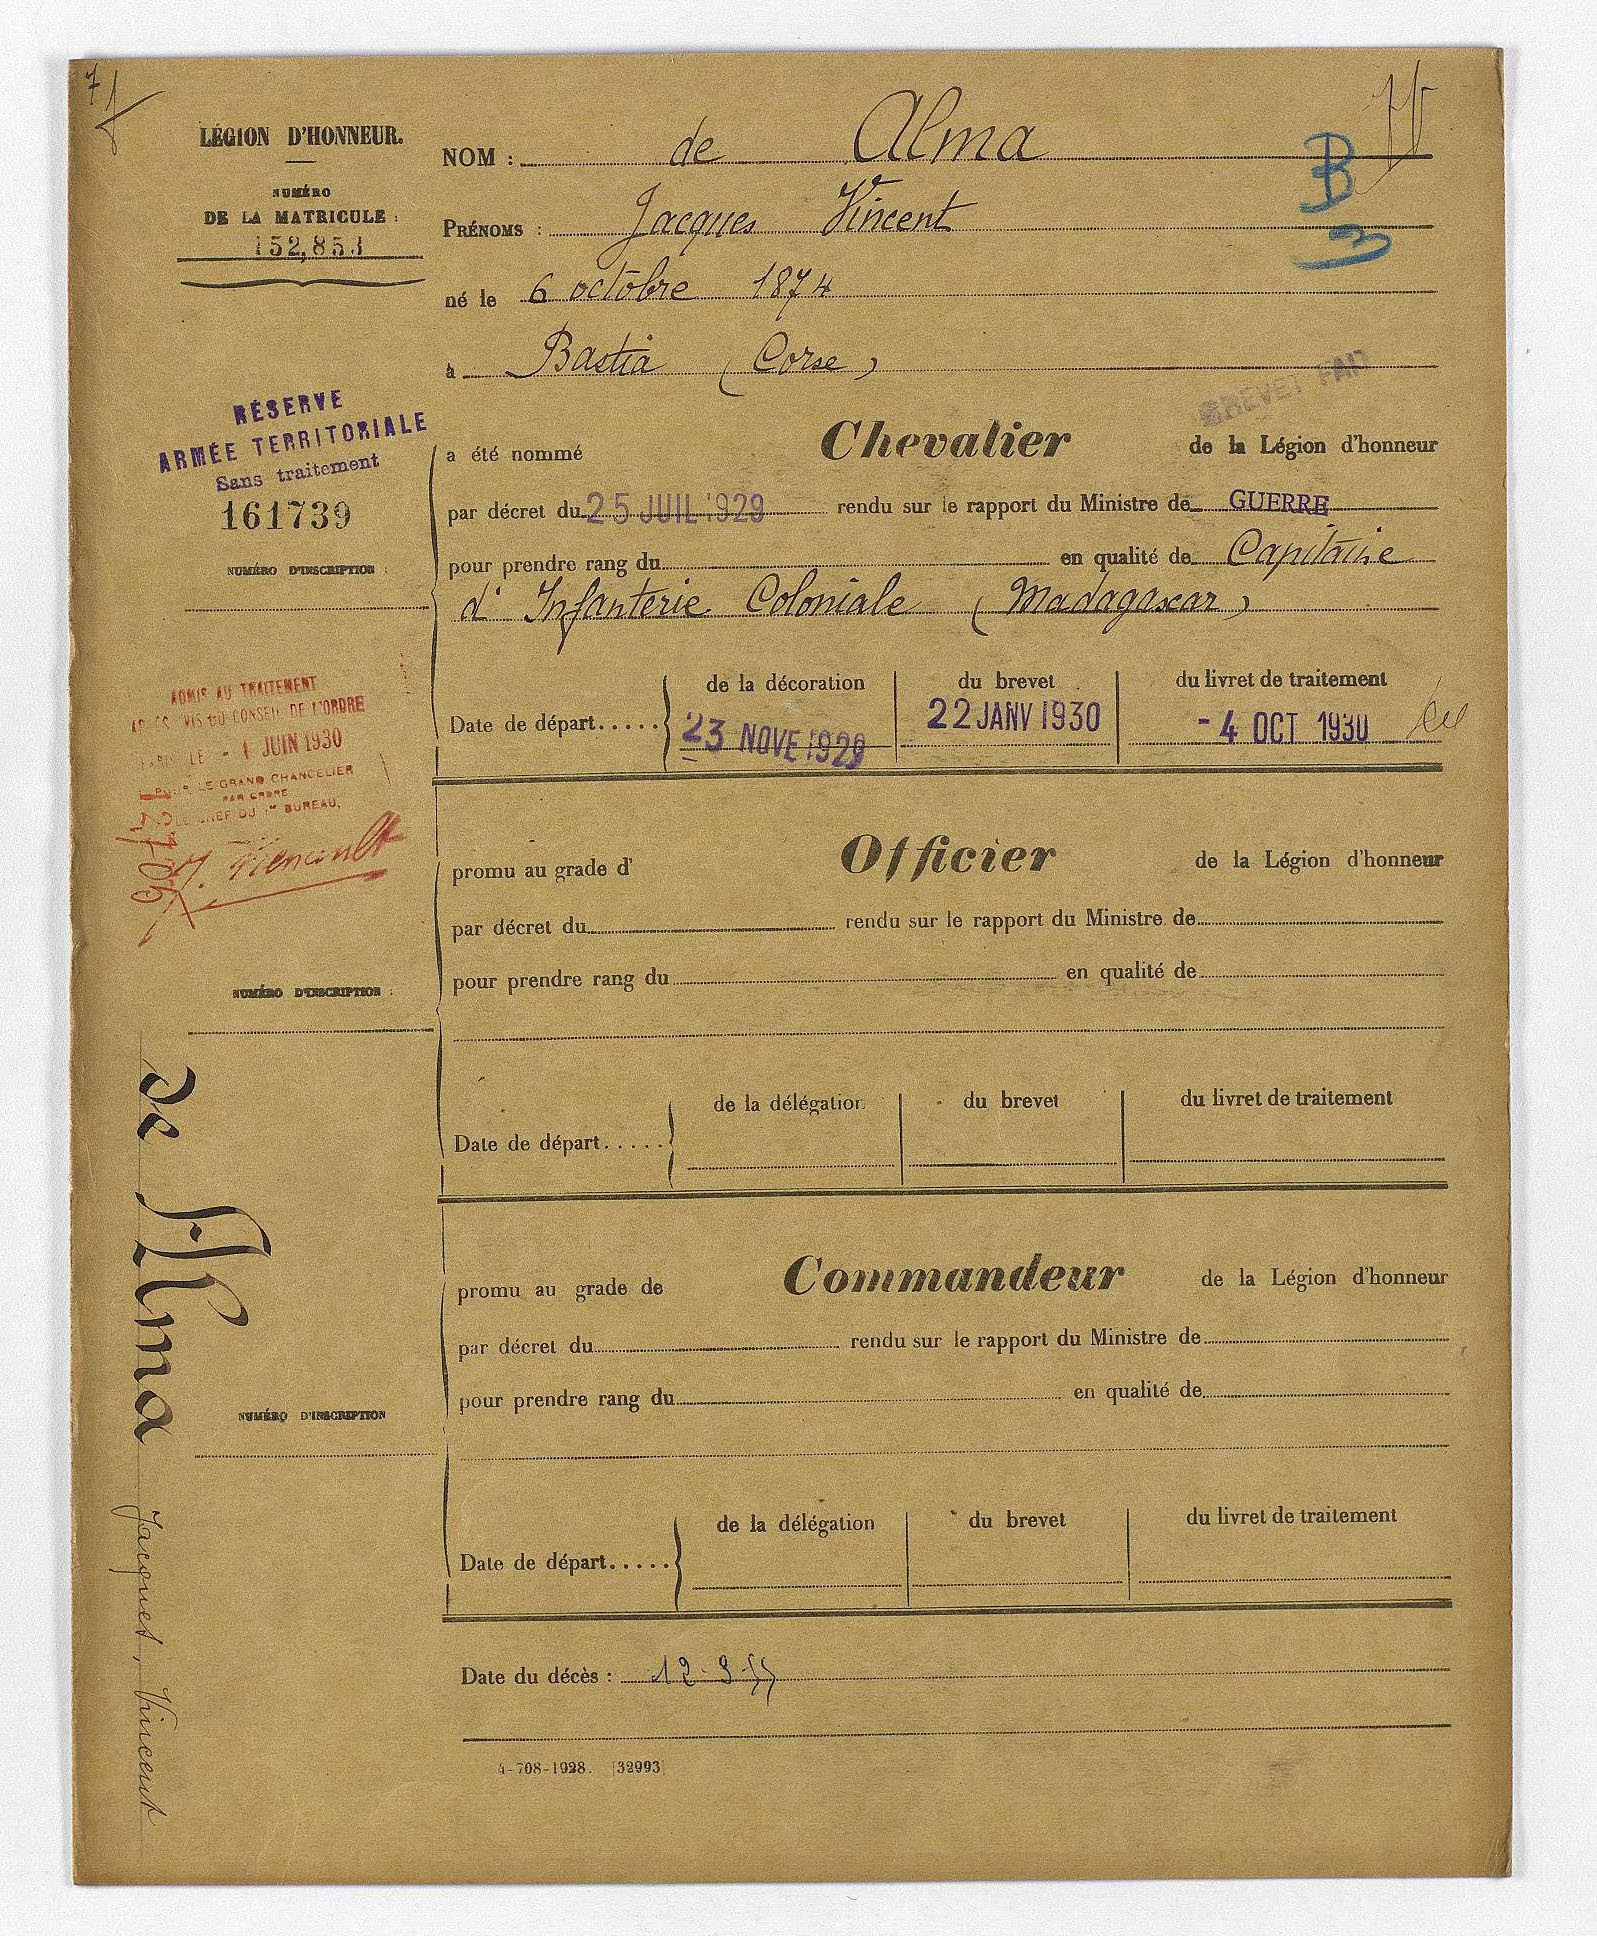 LÉGION D'HONNEUR.
NUMÉRO
DE LA MATRICULE :
152,853
NOM : de Alma
PRÉNOMS : Jacques Vincent
né le 6 octobre 1874
à Bastia (Corse)
B
3
BREVET PAD
RÉSERVE
ARMÉE TERRITORIALE
Sans traitement
161739
NUMÉRO D'INSCRIPTION :
a été nommé Chevalier de la Légion d'honneur
par décret du 25 JUIL 1929 rendu sur le rapport du Ministre de GUERRE
pour prendre rang du en qualité de Capitaine
d'Infanterie Coloniale (Madagascar)
de la décoration du brevet du livret de traitement
Date de départ..... 23 NOVE 1929 22 JANV 1930 - 4 OCT 1930
ADMIS AU TRAITEMENT
VIS DU CONSEIL DE L'ORDRE
LE - 1 JUIN 1930
LE GRAND CHANCELIER
PAR ORDRE
CHEF DU 1er BUREAU,
promu au grade d' Officier de la Légion d'honneur
par décret du rendu sur le rapport du Ministre de
pour prendre rang du en qualité de
NUMÉRO D'INSCRIPTION :
de la délégation du brevet du livret de traitement
Date de départ.....
promu au grade de Commandeur de la Légion d'honneur
par décret du rendu sur le rapport du Ministre de
pour prendre rang du en qualité de
NUMÉRO D'INSCRIPTION
de la délégation du brevet du livret de traitement
Date de départ.....
Date du décès : 12-9-55
4-708-1928. [32993]
de Alma Jacques, Vincent